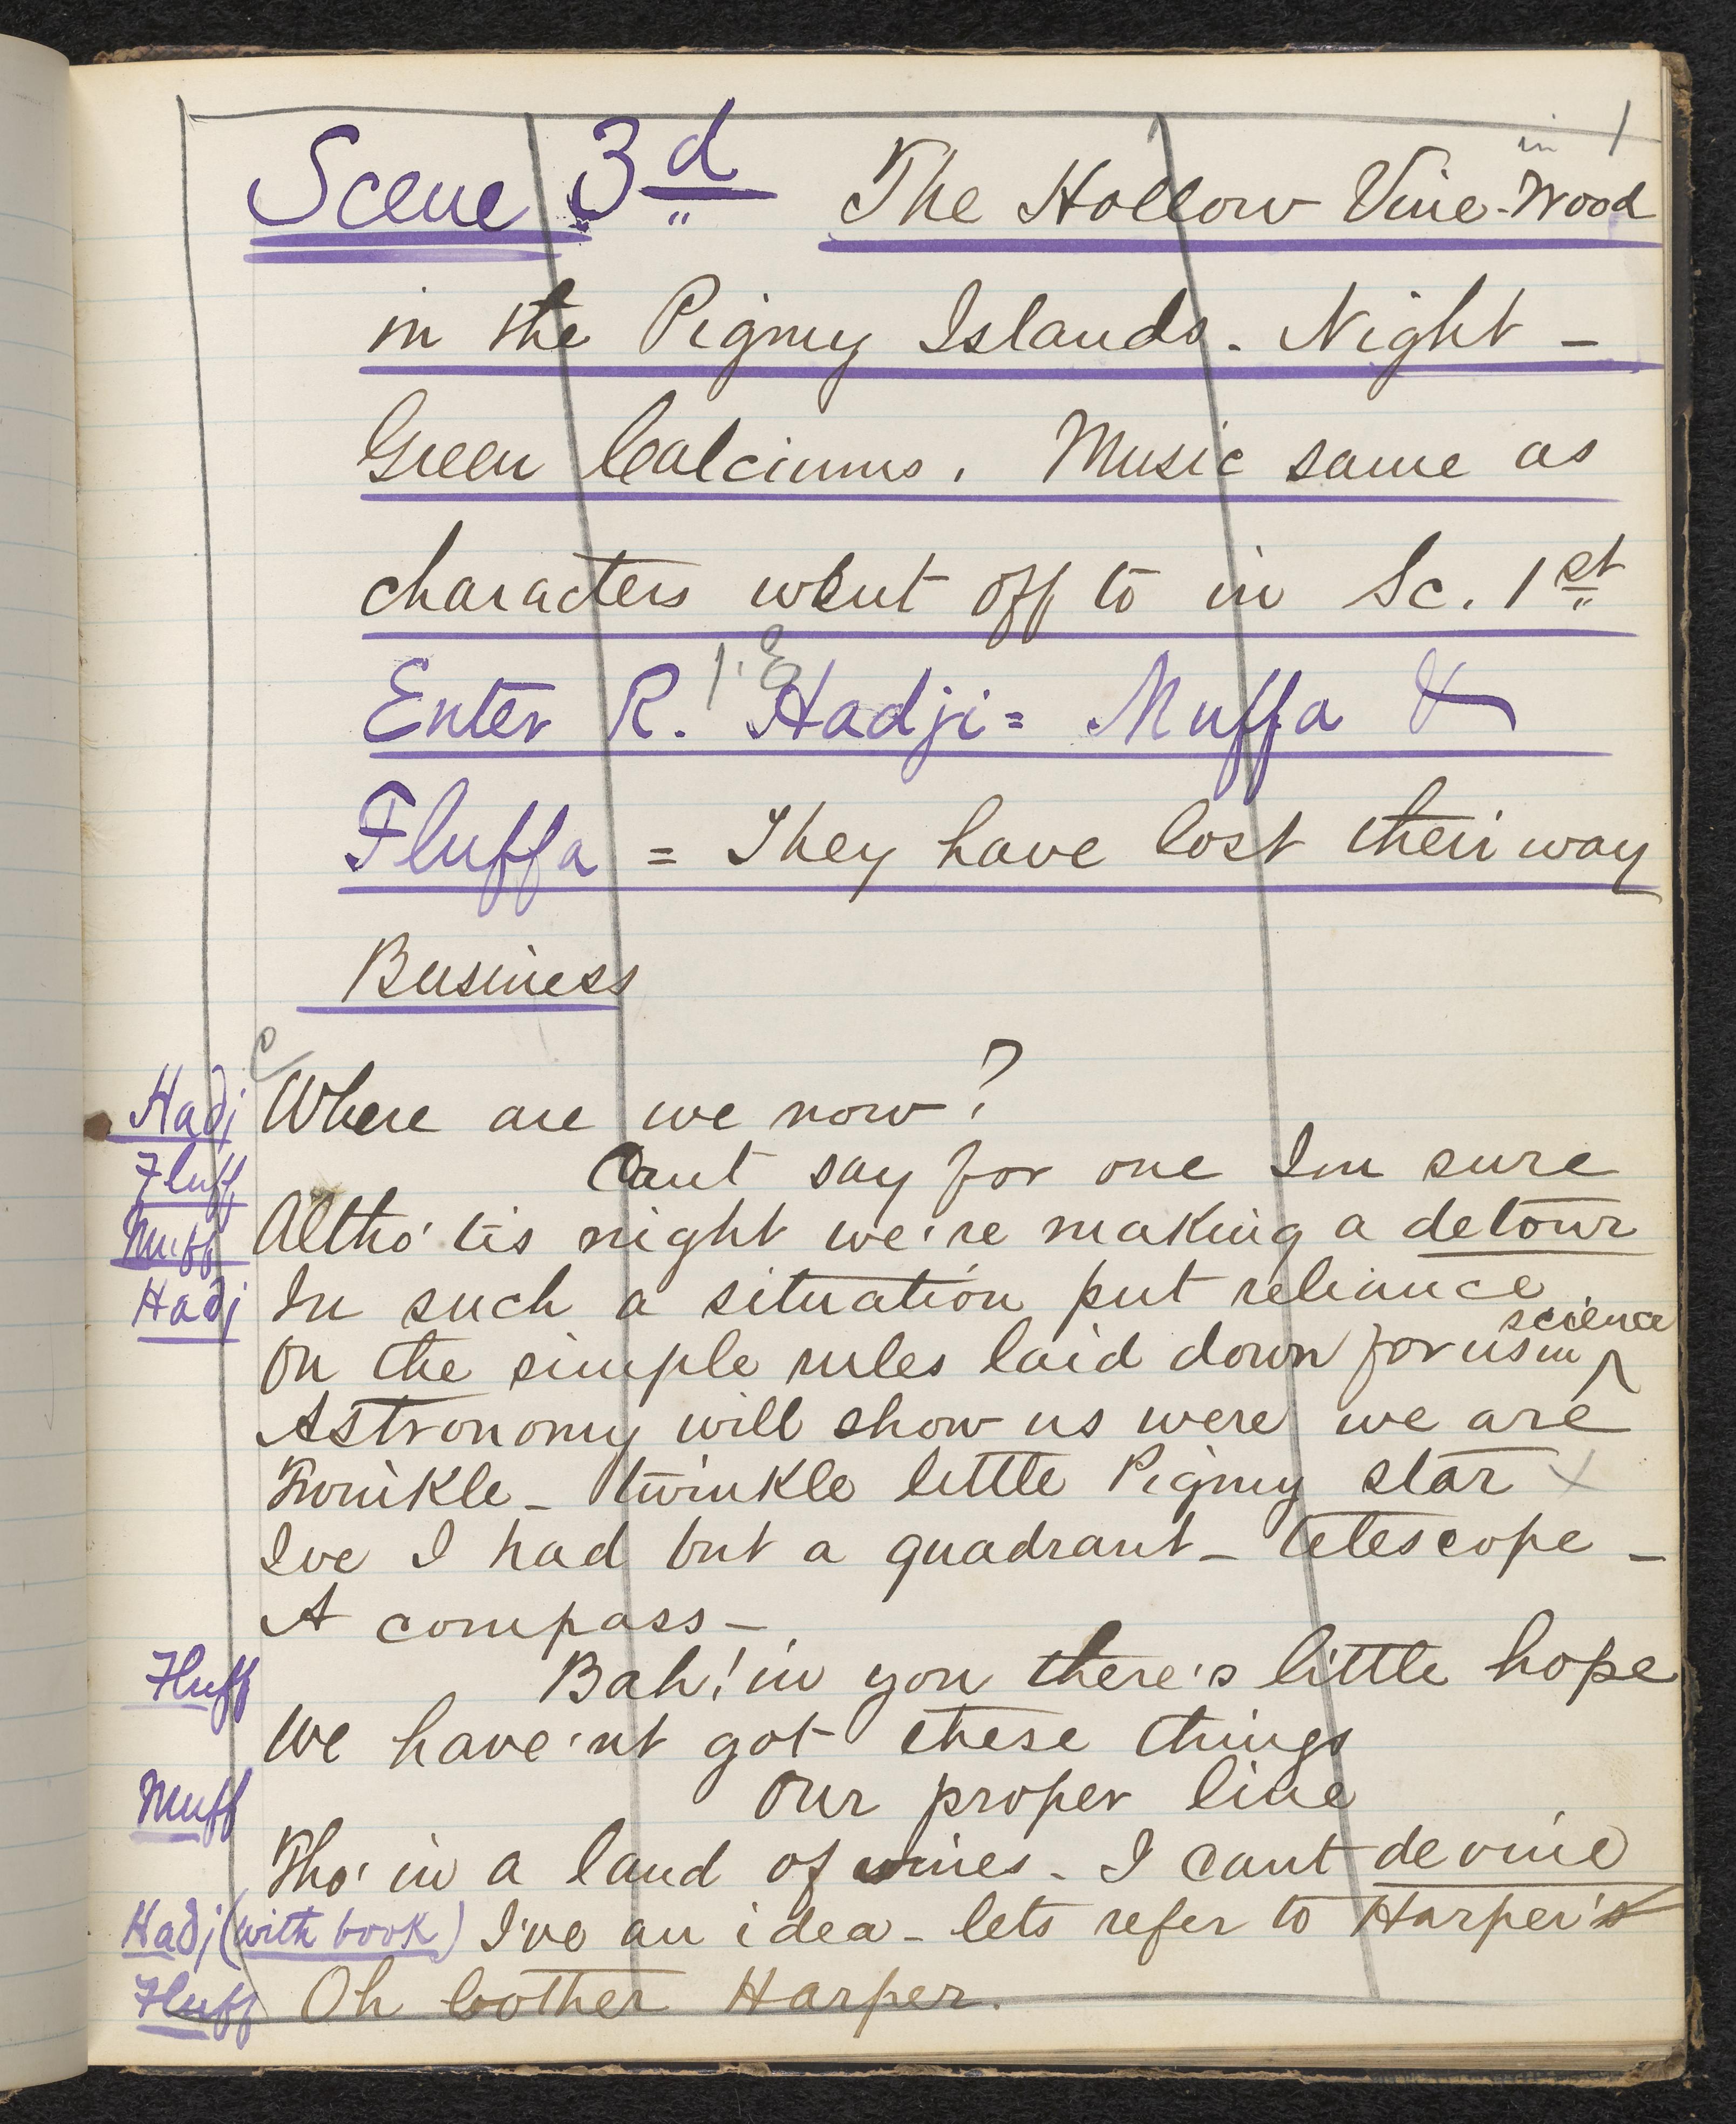 in 1
Scene 3d The Hollow Vine-Wood
in the Pigmy Islands. Night –
Green Calciums. Music same as
characters went off to in Sc. 1st
1.E
Enter R. Hadji = Muffa &
Fluffa = They have lost their way
Business
C
Hadj Where are we now?
Fluff Cant say for one Im sure
Muff Altho' tis night we're making a detour
Hadj In such a situation put reliance
science
On the simple rules laid down for us in ^
Astronomy will show us were we are
Twinkle – twinkle little Pigmy star x
Ive I had but a quadrant – telescope –
A compass –
Fluff Bah! in you there's little hope
We have'nt got these things
Muff Our proper line
Tho' in a land of vines – I cant devine
Hadj (with book) I've an idea – lets refer to Harper's
Fluff Oh bother Harper.